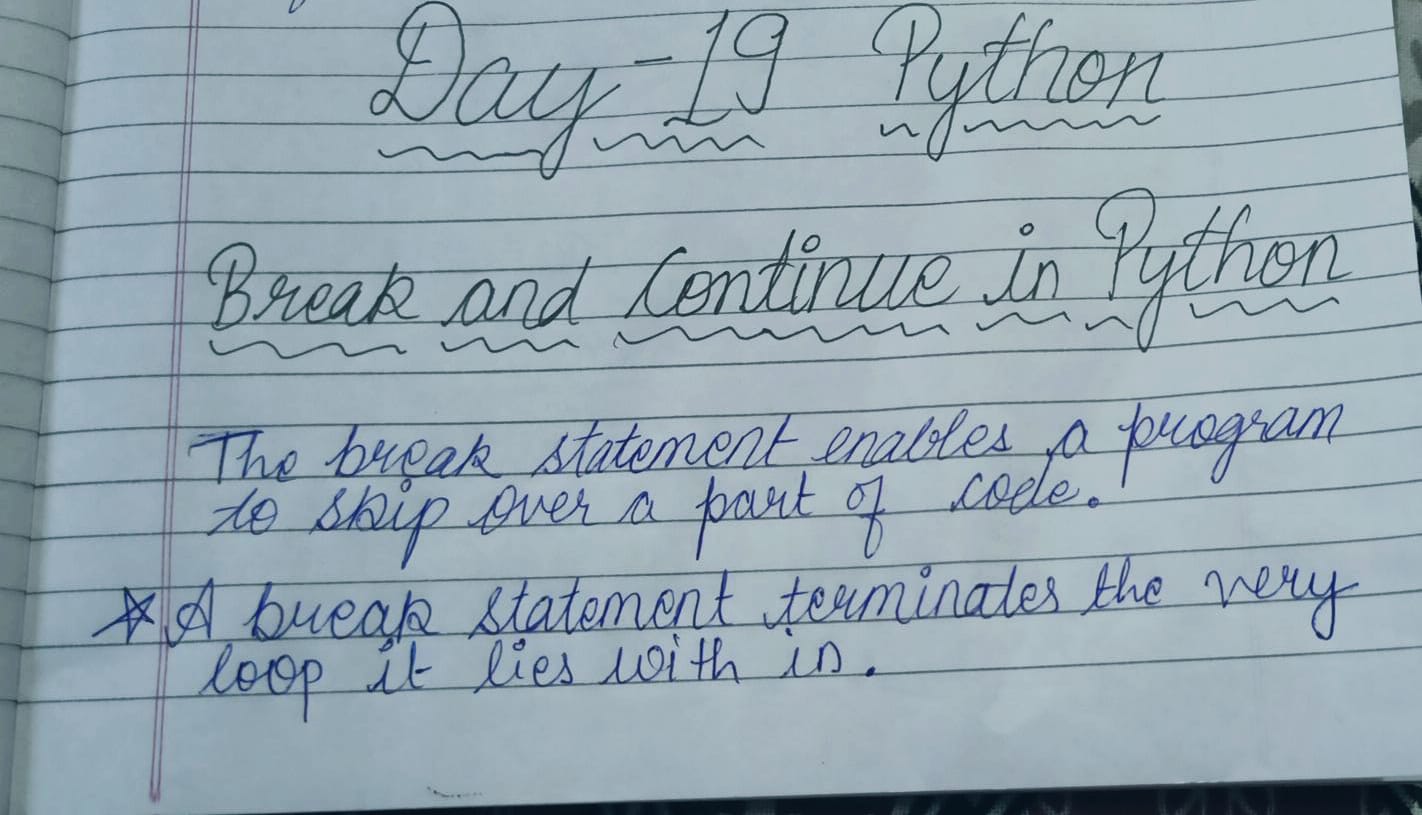 Day-19 Python
Break and Continue in Python
The break statement enables a program
to skip over a part of code.
☆ A break statement terminates the very
loop it lies with in.